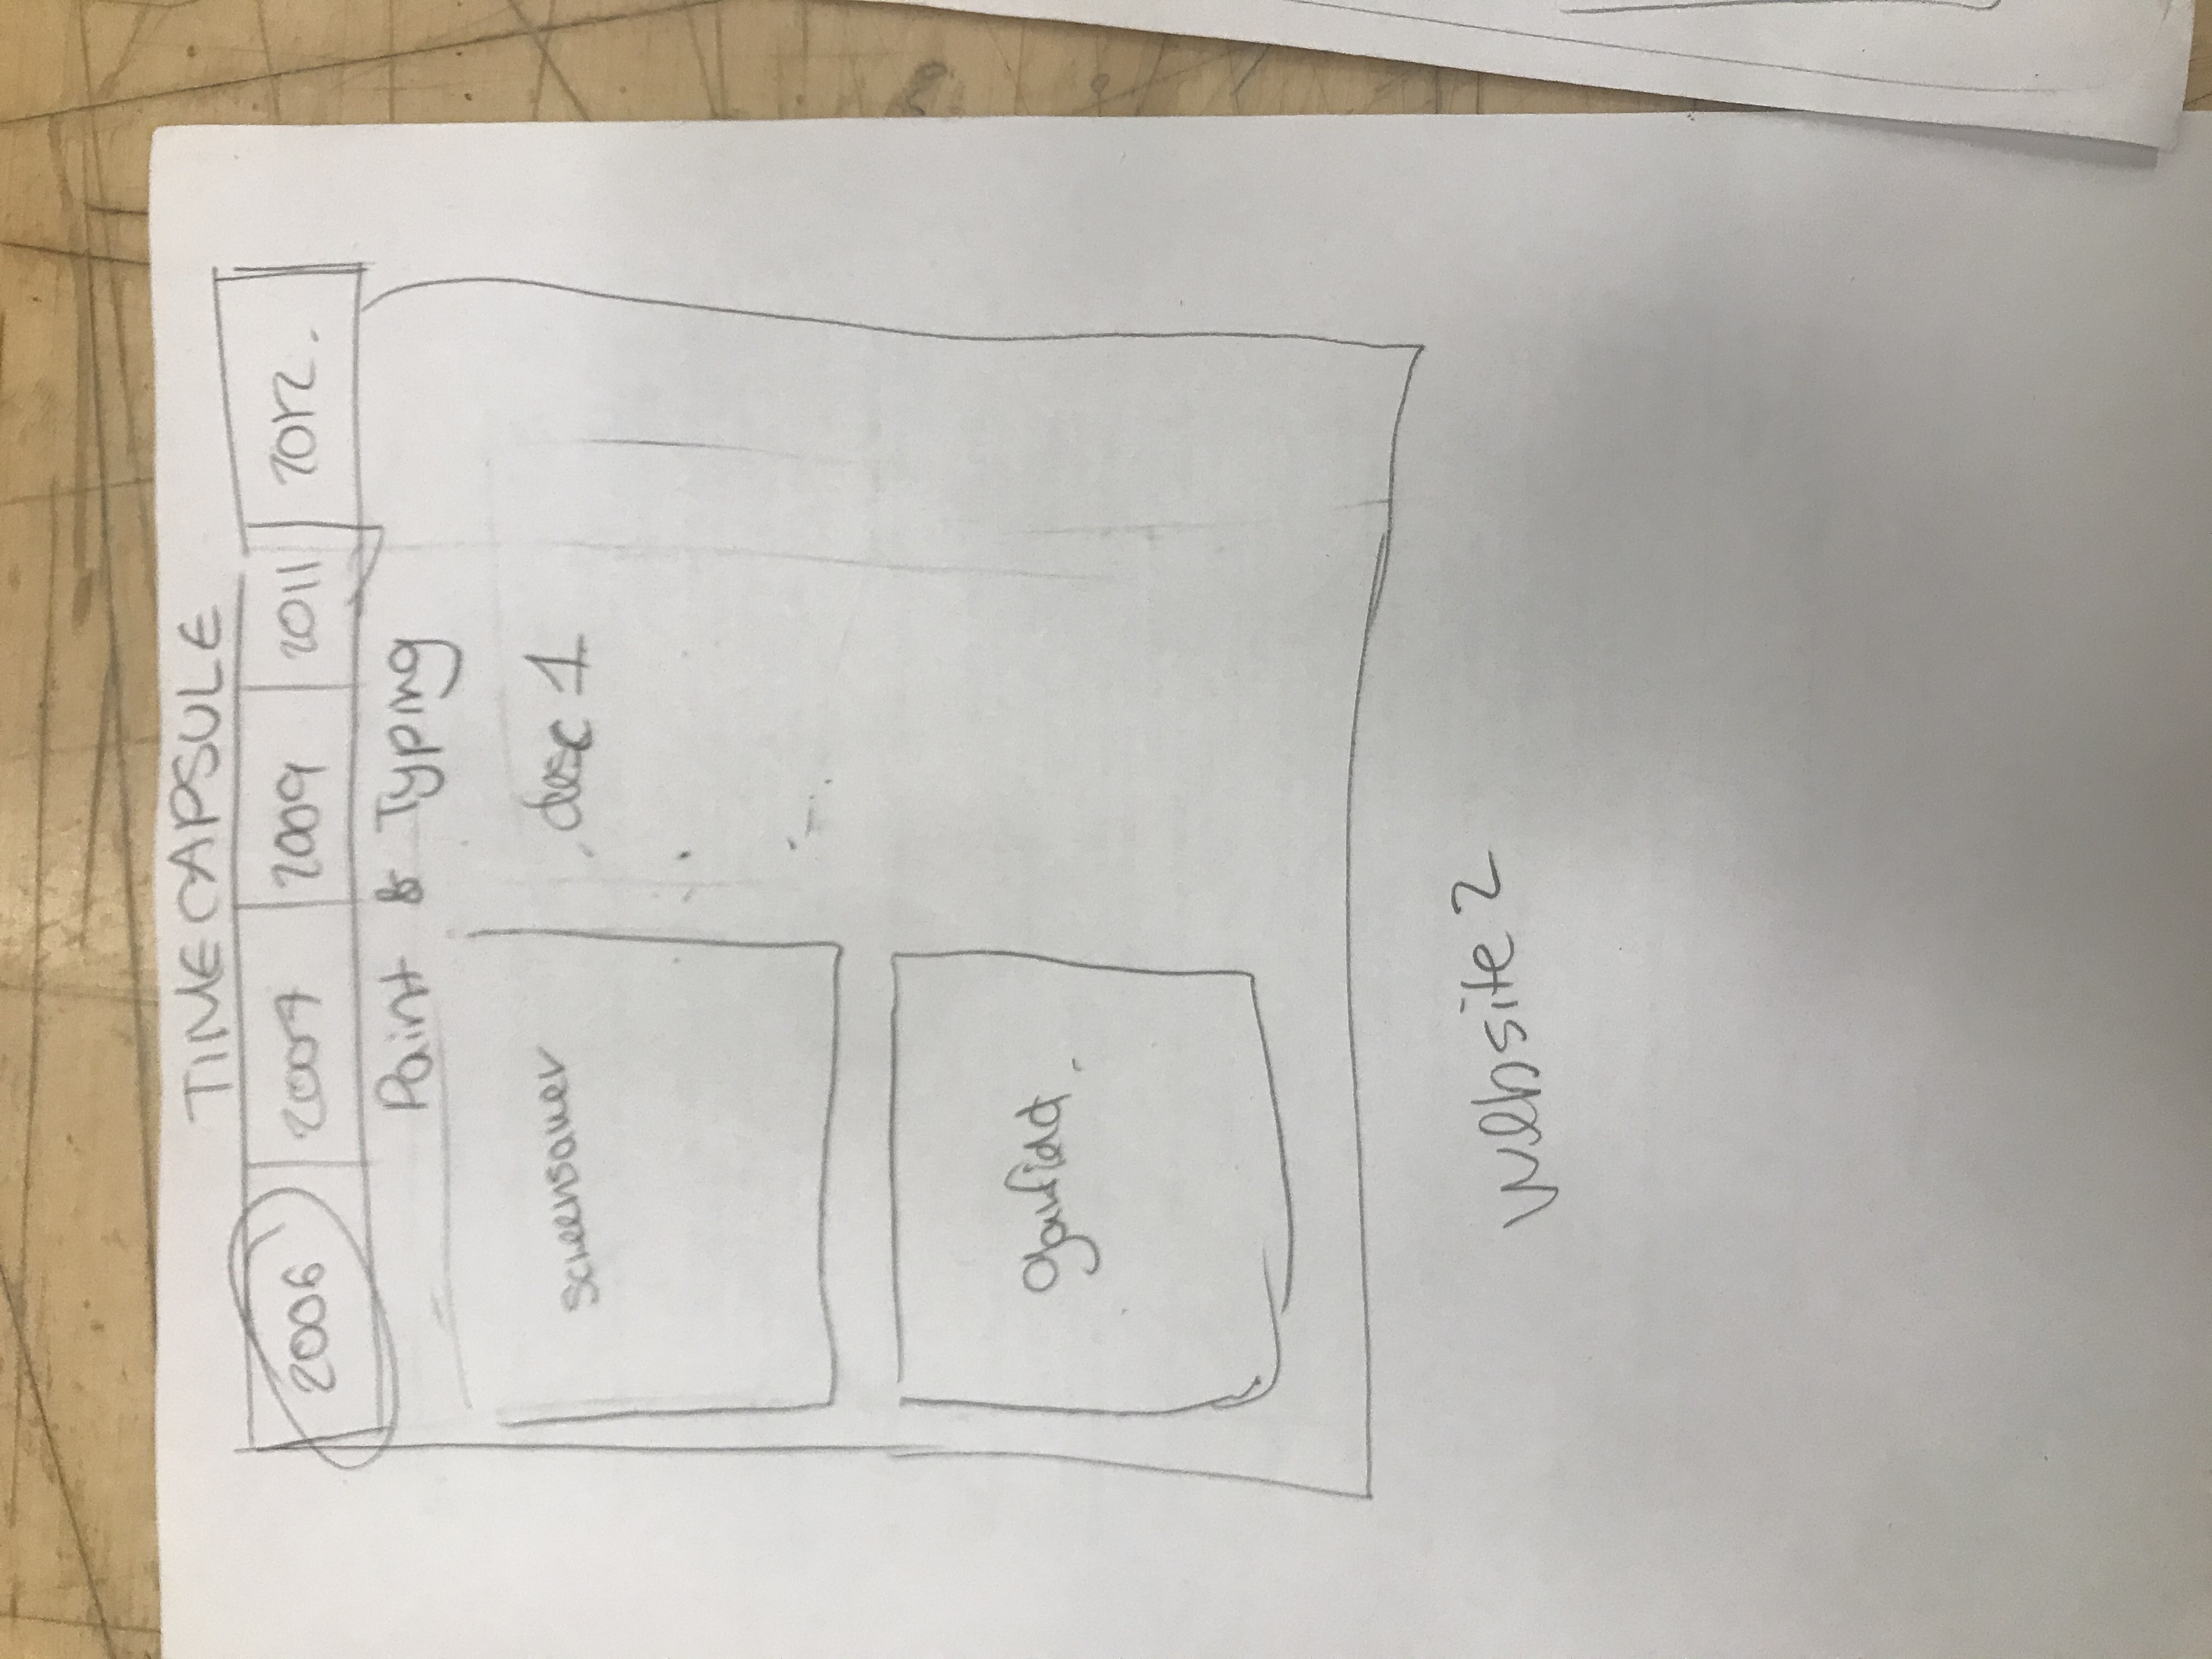 TIMECAPSULE
2006 2007 2009 2011 2012.
Paint & Typing
screensaver desc 1
garfield.
website 2